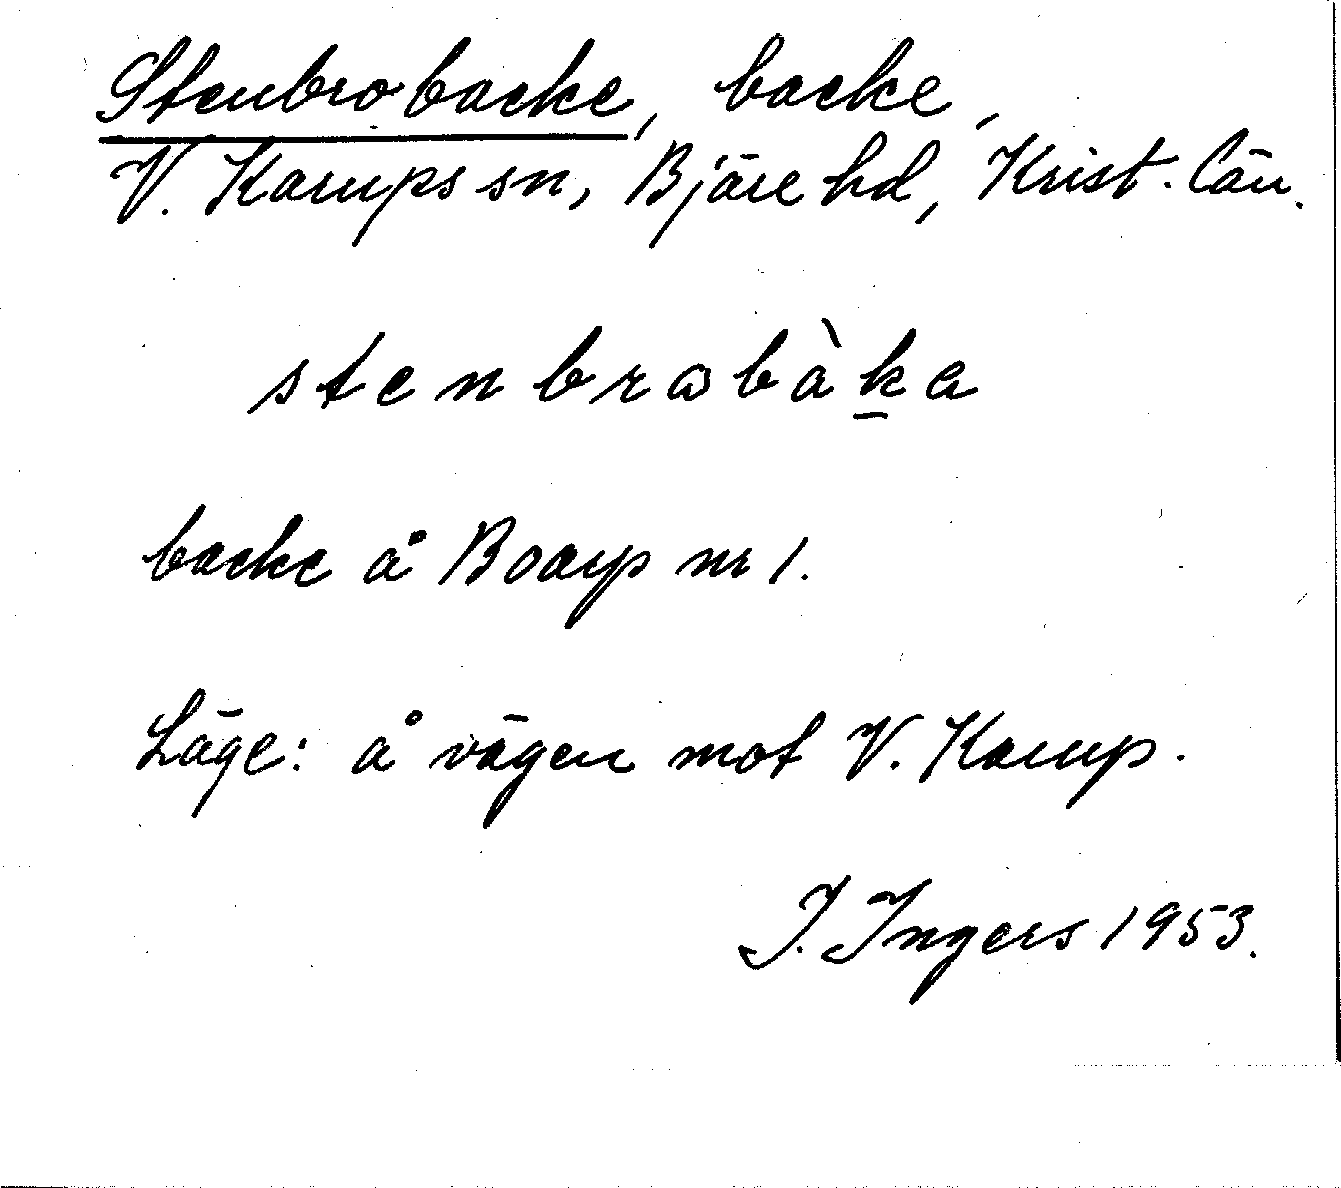 Stenbrobacke, backe,
V. Karups sn, Bjäre hd, Krist. län.
stenbrωbàḵa
backe å Boarp nr 1.
Läge: å vägen mot V. Karup.
I. Ingers 1953.